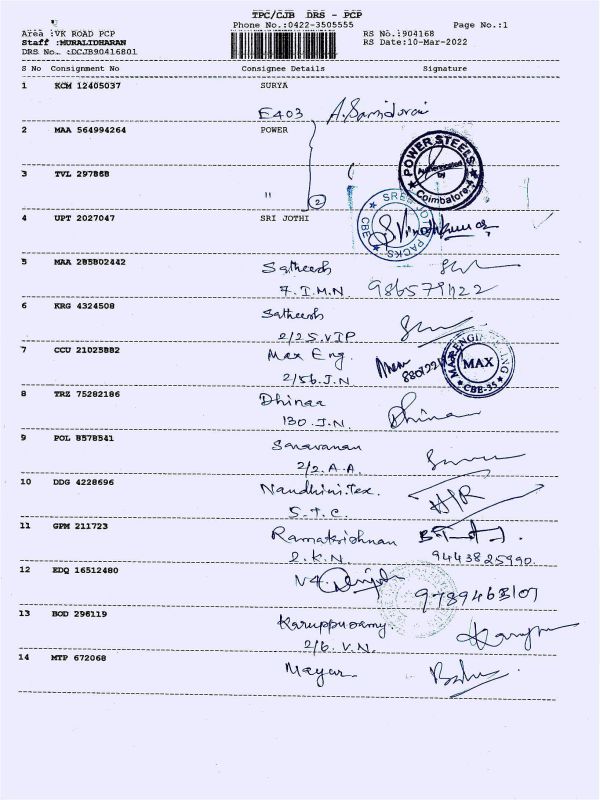 TPC/CJB DRS - PCP
Phone No.:0422-3505555 Page No.:1
Area :VK ROAD PCP RS No.:904168
Staff :MURALIDHARAN RS Date:10-Mar-2022
DRS No. :DCJB90416801
S No Consignment No Consignee Details Signature
1 KCM 12405037 SURYA
E403
2 MAA 564994264 POWER
POWER STEELS
Authenticated
by
Coimbatore-4
3 TVL 297868
"
2
4 UPT 2027047 SRI JOTHI
SREE JOTHI PACKS
CBE
5 MAA 285802442 Satheesh
7.I.M.N.
6 KRG 4324508 Satheesh
2/25.VIP
7 CCU 21025882 Max Eng.
2/56.J.N
MAX
CBE-35
8 TRZ 75282186 Dhinaa Dhina
130.J.N.
9 POL 8578541 Saravanan
2/2.A.A.
10 DDG 4228696 Nandhini.Tex.
S.T.C
11 GPM 211723 Ramakrishnan
2.K.N. 9443825990.
12 EDQ 16512480
13 BOD 296119 Karuppusamy
2/6.V.N.
14 MTP 672068 Mayar